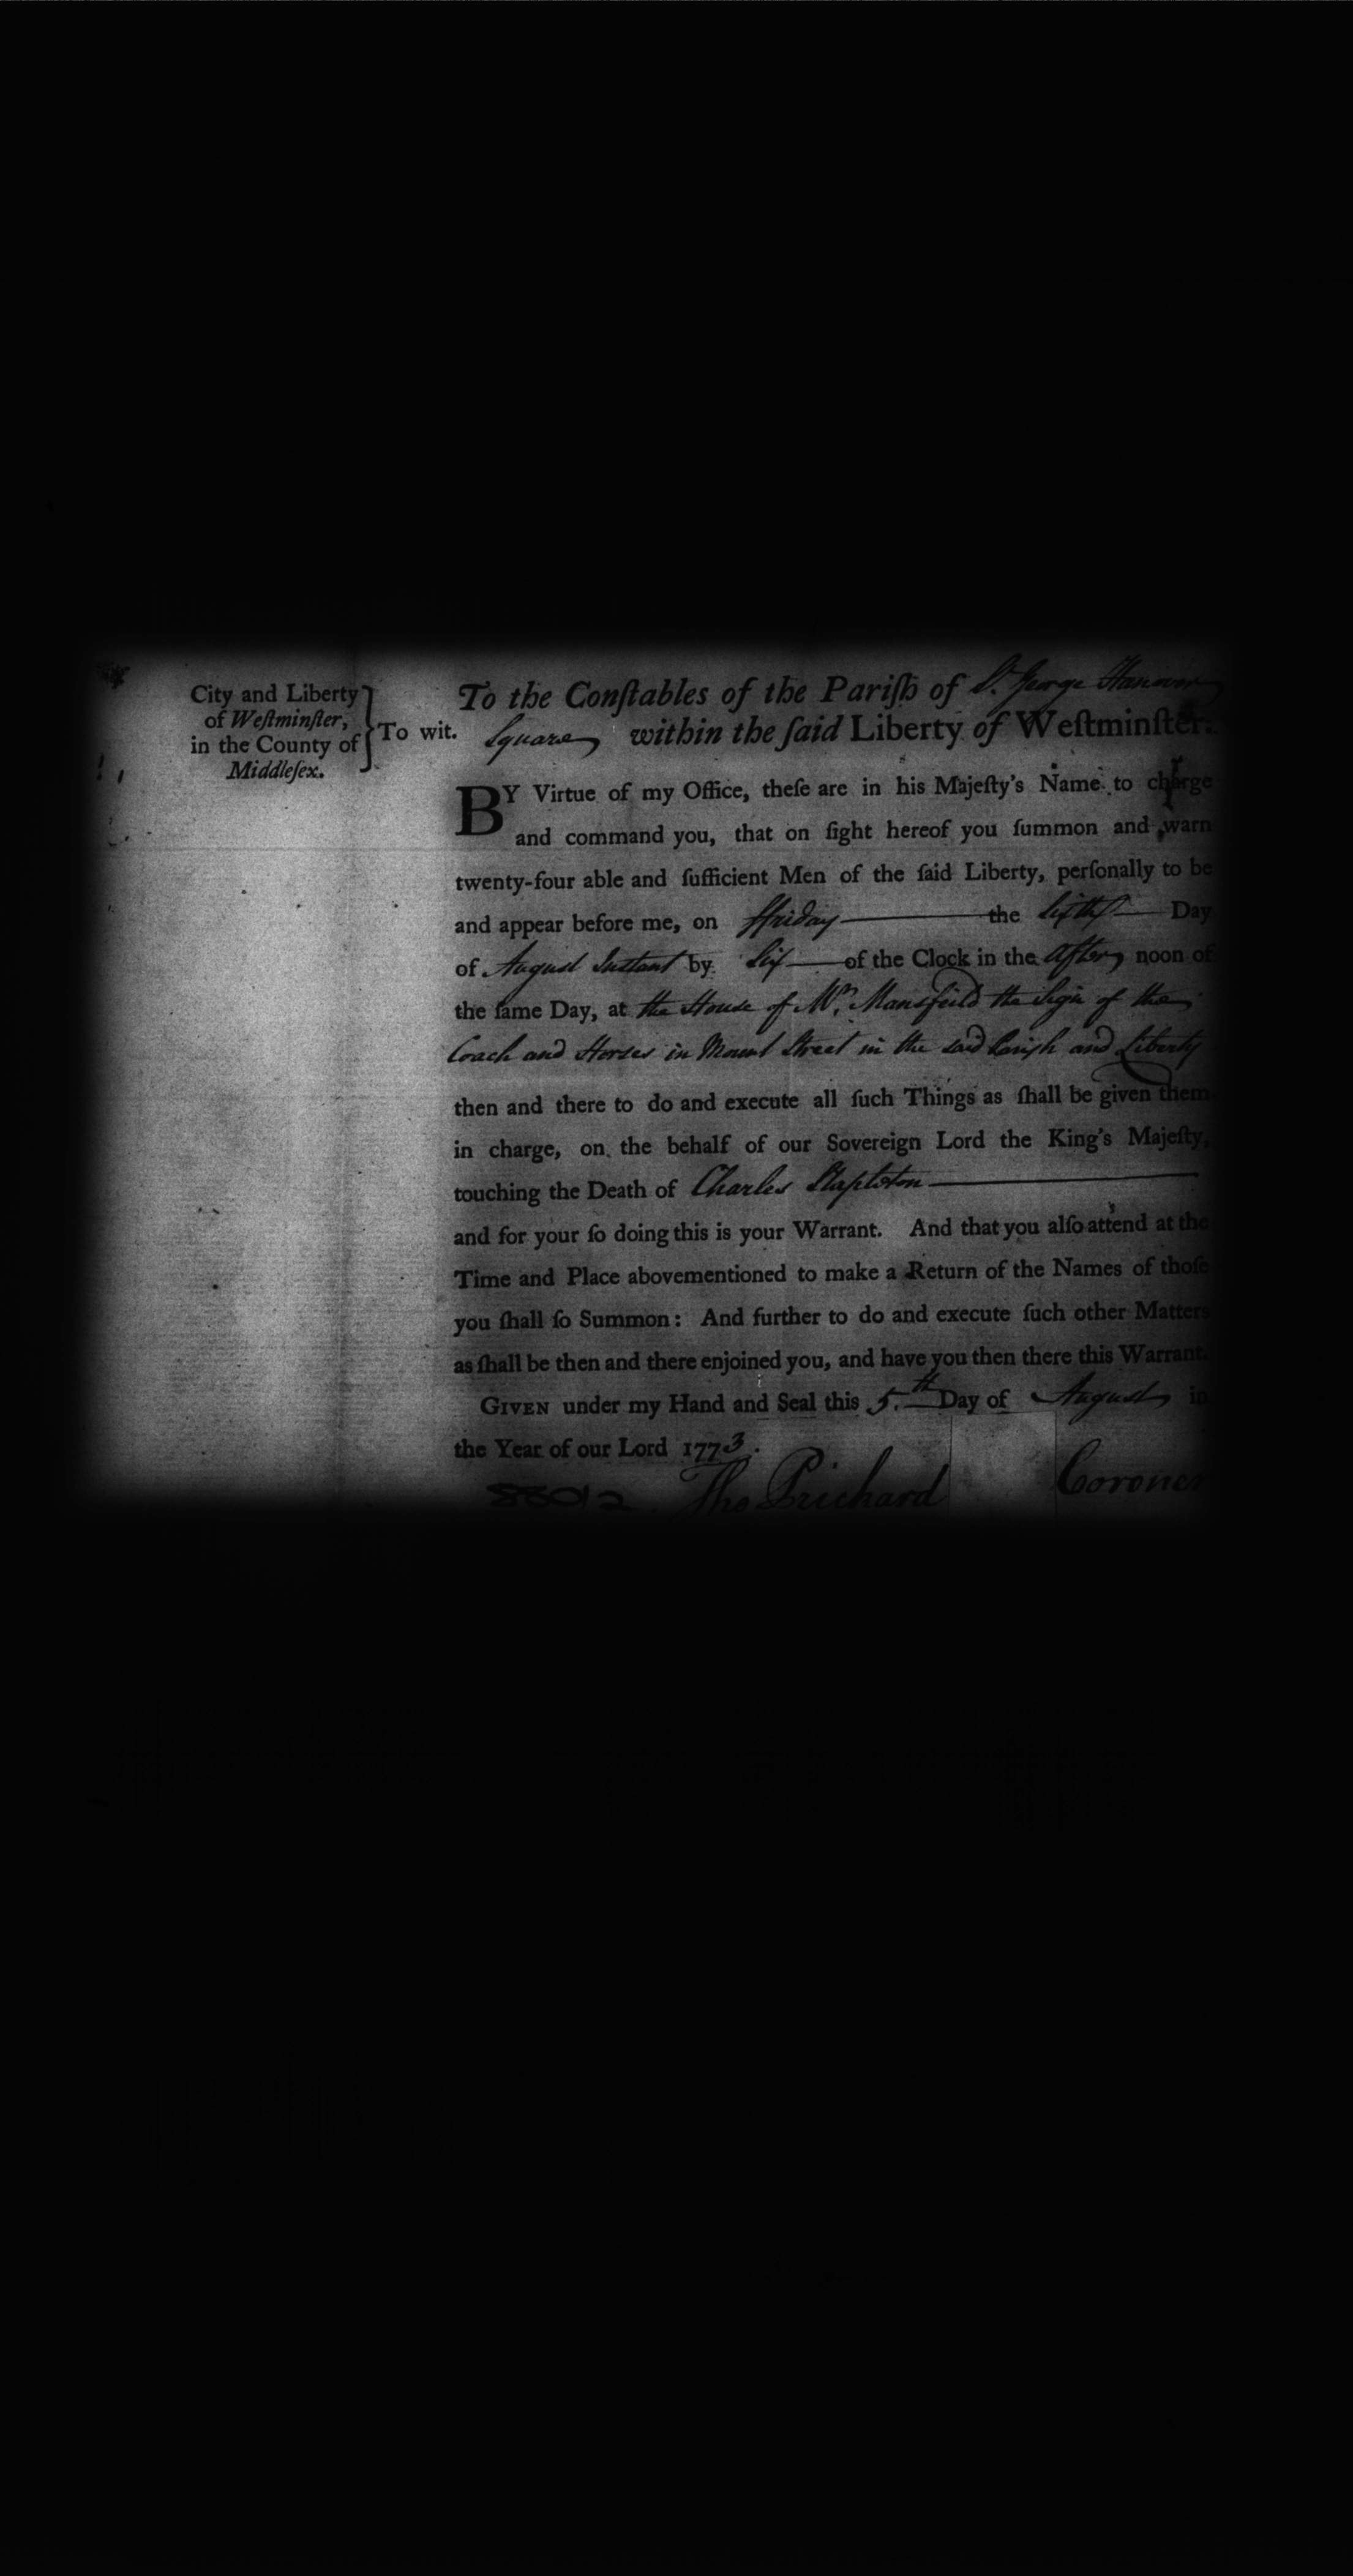 City and Liberty
of Weſtminſter,
in the County of
Middleſex.
To wit.
To the Conſtables of the Pariſh of St. George Hanover
Square within the ſaid Liberty of Weſtminſter.
BY Virtue of my Office, theſe are in his Majeſty's Name to charge
and command you, that on ſight hereof you ſummon and warn
twenty-four able and ſufficient Men of the ſaid Liberty, perſonally to be
and appear before me, on ffriday the Sixth Day
of August Instant by Six of the Clock in the After noon of
the ſame Day, at the House of Mr. Mansfeild the Sign of the
Coach and Horses in Mount Street in the said Parish and Liberty
then and there to do and execute all ſuch Things as ſhall be given them
in charge, on the behalf of our Sovereign Lord the King's Majeſty,
touching the Death of Charles Stapleton
and for your ſo doing this is your Warrant. And that you alſo attend at the
Time and Place abovementioned to make a Return of the Names of thoſe
you ſhall ſo Summon: And further to do and execute ſuch other Matters
as ſhall be then and there enjoined you, and have you then there this Warrant.
GIVEN under my Hand and Seal this 5.th Day of August in
the Year of our Lord 1773.
Tho Prichard Coroner